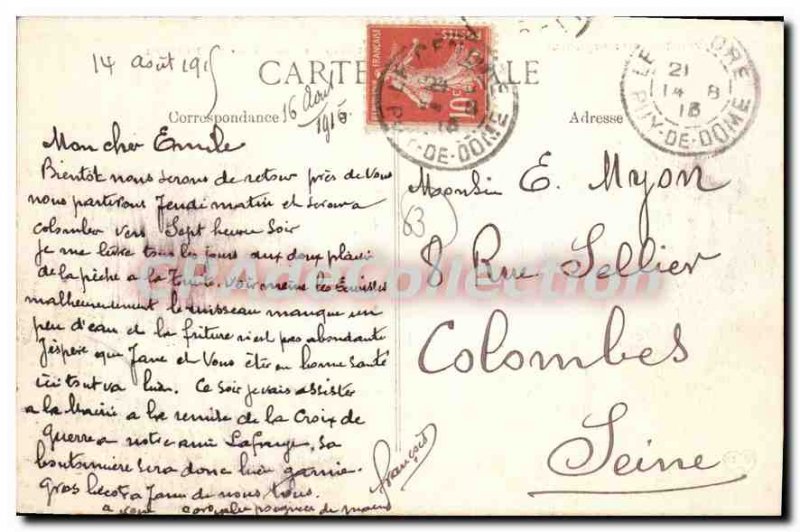 14 août 1915
CARTE POSTALE
Correspondance
16 Août
1915
Adresse
Mon cher Emile
Bientôt nous serons de retour près de Vous
nous partirons Jeudi matin et serons a
colombes vers Sept heures Soir
je me livre tous les jours aux doux plaisir
de la pêche a la Truite, voir meme les Ecrevisses
malheureusement le ruisseau manque un
peu d'eau et la friture n'est pas abondante
J'espère que Jane et Vous êtes en bonne santé
ici tout va bien. Ce soir je vais assister
a la Mairie a la remise de la Croix de
Guerre a notre ami Lafarge, sa
boutonnière sera donc bien garnie.
Gros becots a Jane de nous tous.
a vous cordiale poignée de mains
François
Monsieur E. Myon
8 Rue Sellier
Colombes
Seine
63
POSTES
10c
21
14 8
15
PUY-DE-DOME
CPAdeCollection